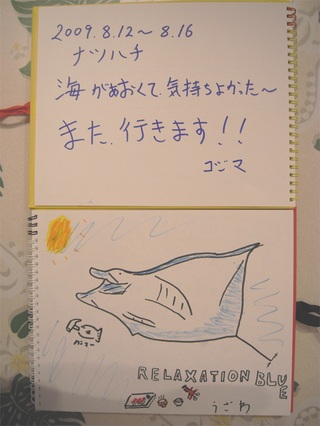 2009.8.12～8.16
ナツハチ
海があおくて、気持ちよかった～
また、行きます!!
コジマ
RELAXATION BLUE